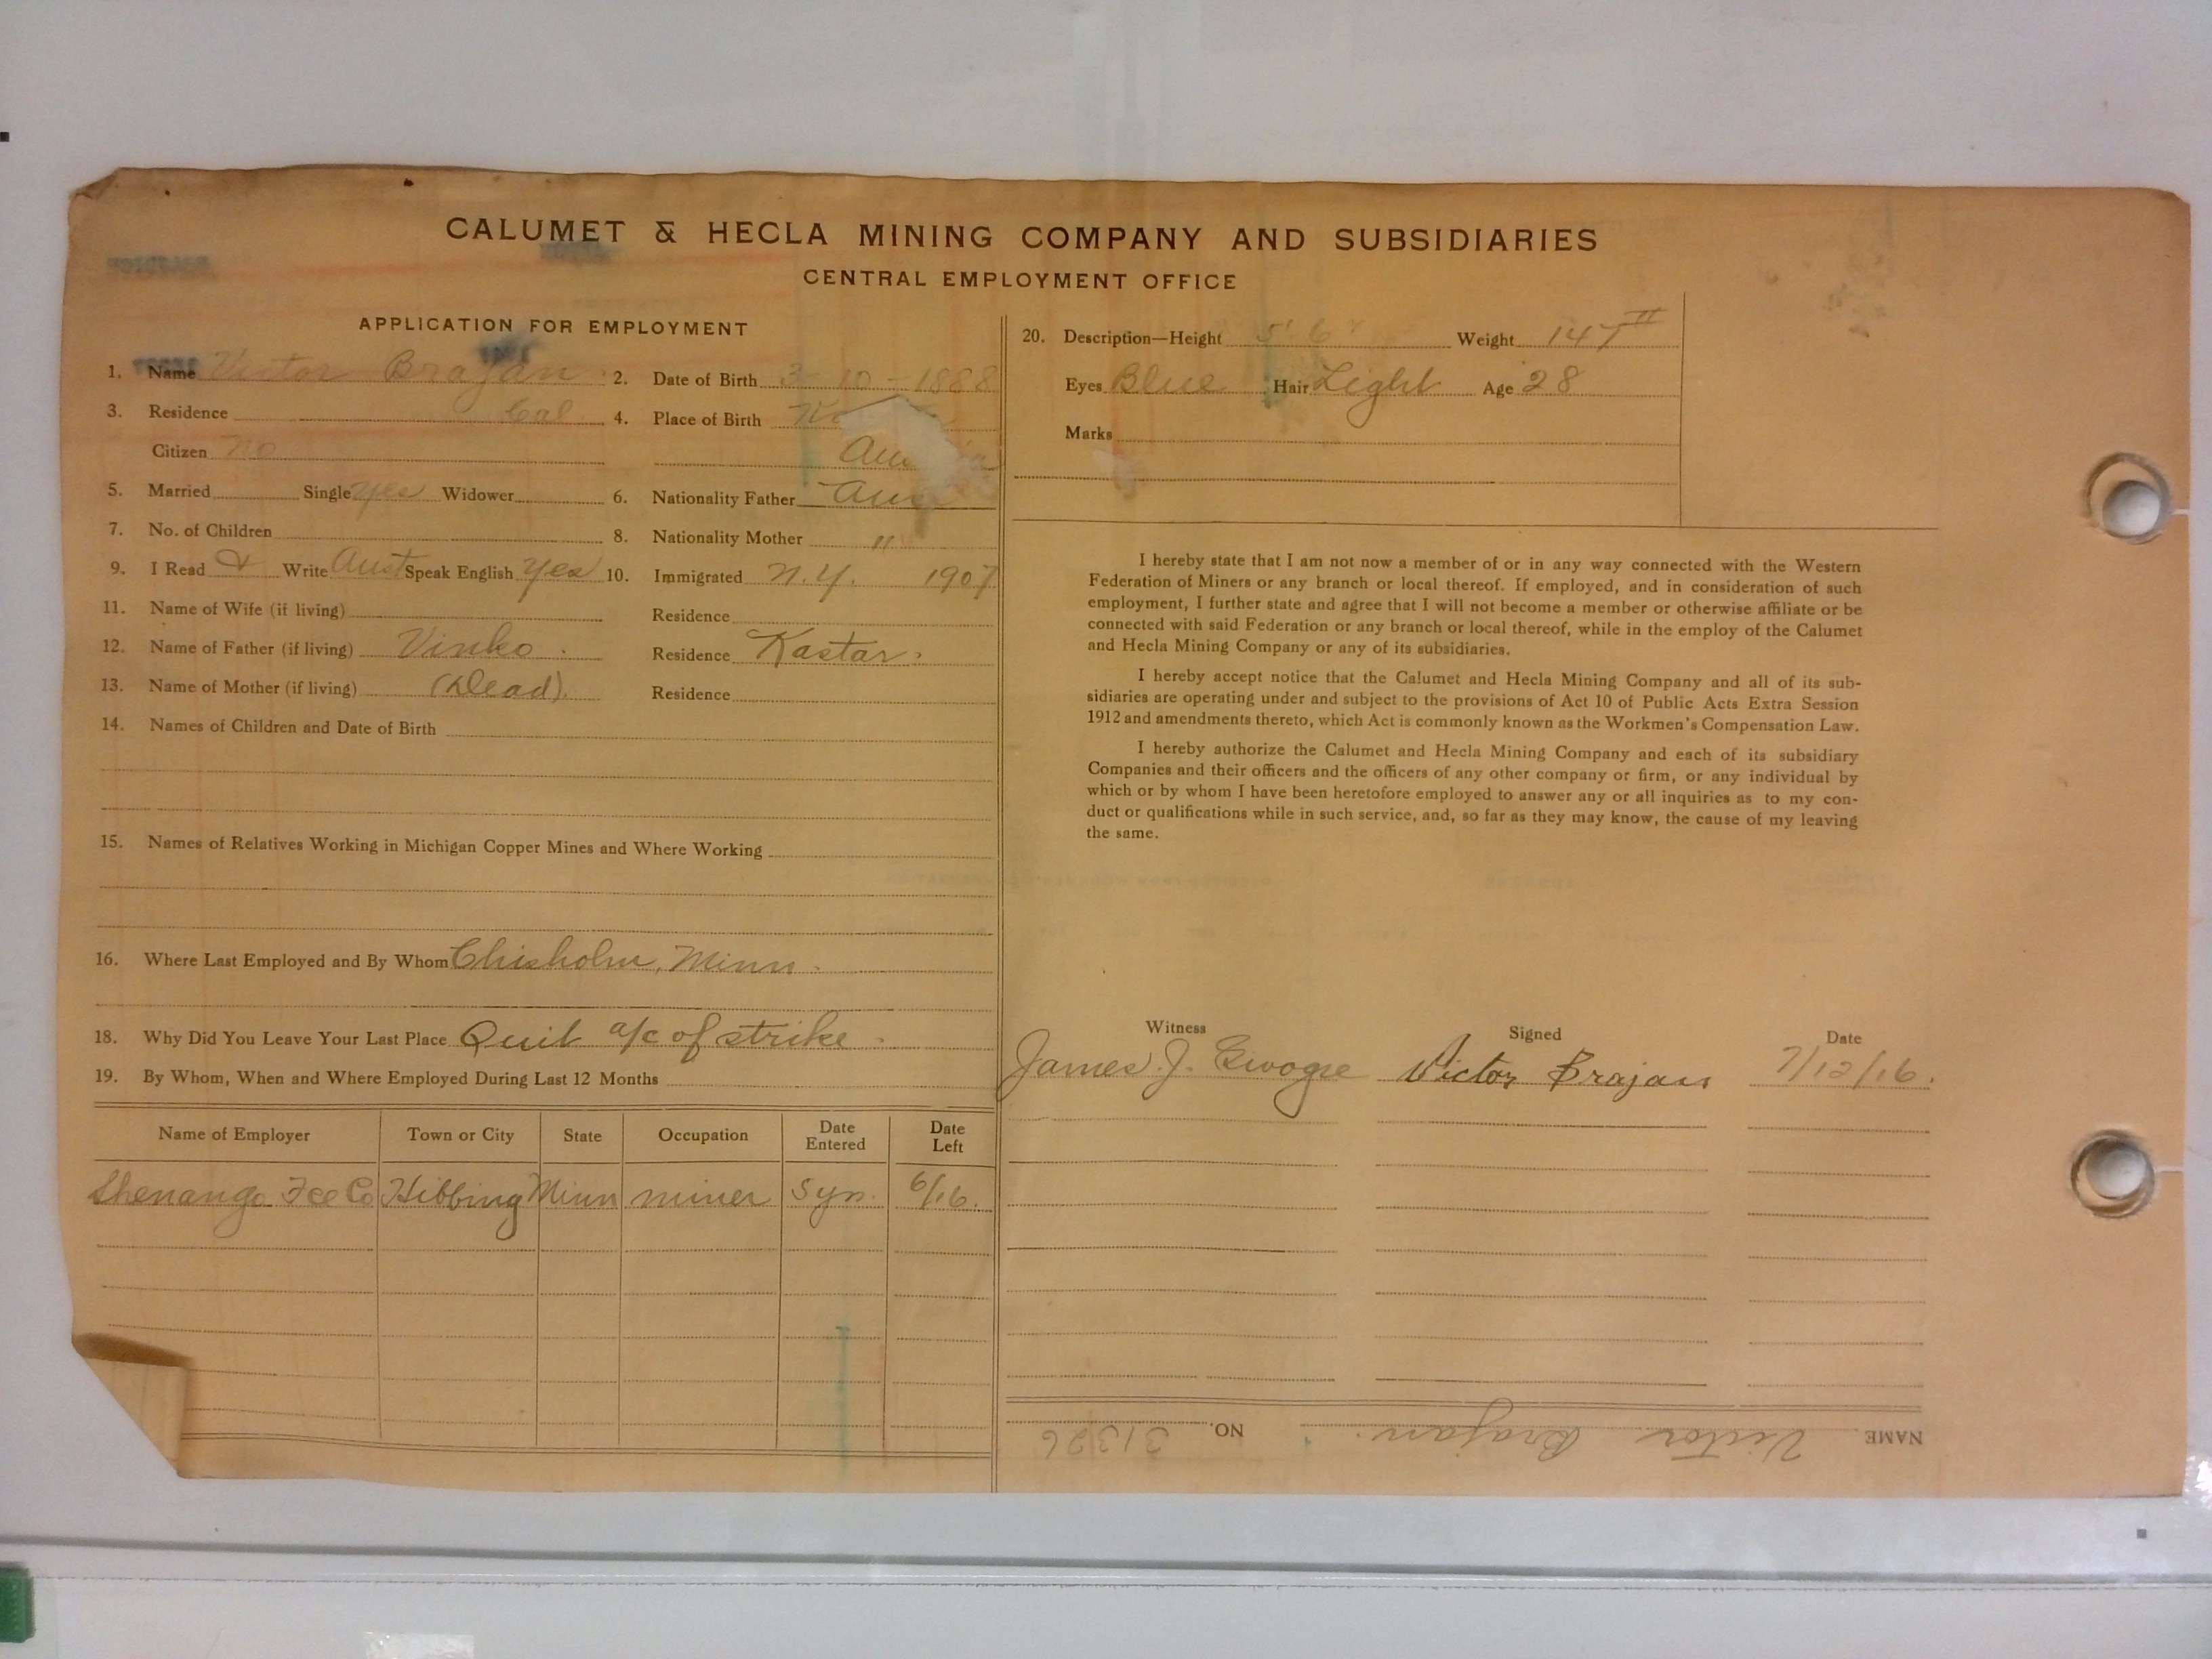 CALUMET & HECLA MINING COMPANY AND SUBSIDIARIES
CENTRAL EMPLOYMENT OFFICE
APPLICATION FOR EMPLOYMENT
1. Name Victor Brajan 2. Date of Birth 3-10-1888
3. Residence Cal. 4. Place of Birth
Citizen No
5. Married Single Yes Widower 6. Nationality Father
7. No. of Children 8. Nationality Mother "
9. I Read & Write Aust Speak English Yes 10. Immigrated N.Y. 1907
11. Name of Wife (if living) Residence
12. Name of Father (if living) Vinko. Residence Kastar.
13. Name of Mother (if living) (Dead). Residence
14. Names of Children and Date of Birth
15. Names of Relatives Working in Michigan Copper Mines and Where Working
16. Where Last Employed and By Whom Chisholm, Minn.
18. Why Did You Leave Your Last Place Quit a/c of strike.
19. By Whom, When and Where Employed During Last 12 Months
Name of Employer Town or City State Occupation Date Entered Date Left
Shenango Fce Co Hibbing Minn miner 5 yrs. 6/16.
20. Description—Height 5' 6" Weight 147
Eyes Blue Hair Light Age 28
Marks
I hereby state that I am not now a member of or in any way connected with the Western
Federation of Miners or any branch or local thereof. If employed, and in consideration of such
employment, I further state and agree that I will not become a member or otherwise affiliate or be
connected with said Federation or any branch or local thereof, while in the employ of the Calumet
and Hecla Mining Company or any of its subsidiaries.
I hereby accept notice that the Calumet and Hecla Mining Company and all of its sub-
sidiaries are operating under and subject to the provisions of Act 10 of Public Acts Extra Session
1912 and amendments thereto, which Act is commonly known as the Workmen's Compensation Law.
I hereby authorize the Calumet and Hecla Mining Company and each of its subsidiary
Companies and their officers and the officers of any other company or firm, or any individual by
which or by whom I have been heretofore employed to answer any or all inquiries as to my con-
duct or qualifications while in such service, and, so far as they may know, the cause of my leaving
the same.
Witness Signed Date
James J. Victor Brajan 7/12/16.
NAME Victor Brajan. NO. 31326